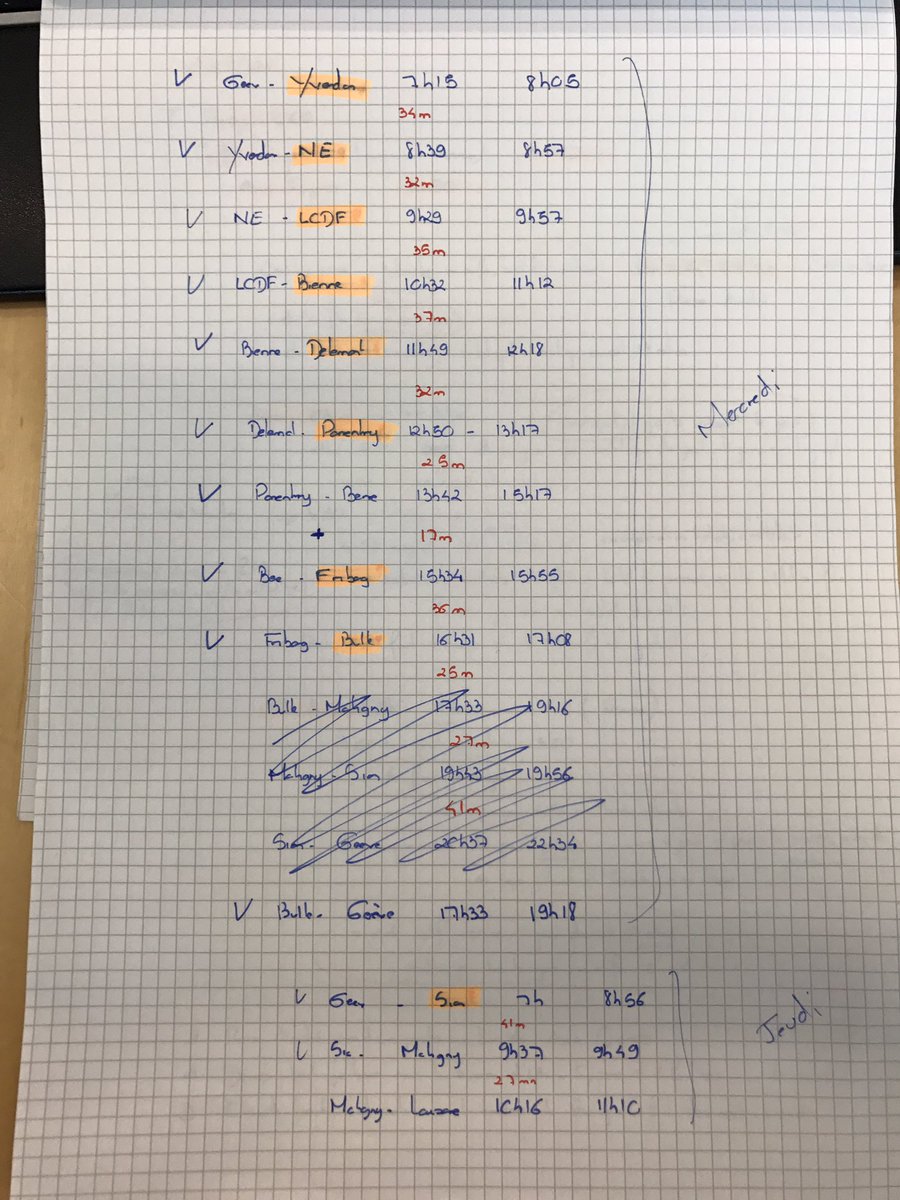 V Genev - Yverdon 7h15 8h05
34m
V Yverdon - NE 8h39 8h57
32m
V NE - LCDF 9h29 9h57
35m
V LCDF - Bienne 10h32 11h12
37m
V Bienne - Delemont 11h49 12h18
32m
V Delemont - Porrentruy 12h50 - 13h17
25m
V Porrentruy - Berne 13h42 15h17
+ 17m
V Berne - Fribourg 15h34 15h55
36m
V Fribourg - Bulle 16h31 17h08
25m
Bulle - Martigny 17h33 19h16
27m
Martigny - Sion 19h43 19h56
41m
Sion - Genève 20h37 22h34
V Bulle - Genève 17h33 19h18
Mercredi
V Genev - Sion 7h 8h56
41m
V Sion - Martigny 9h37 9h49
27mn
Martigny - Lausanne 10h16 11h10
Jeudi